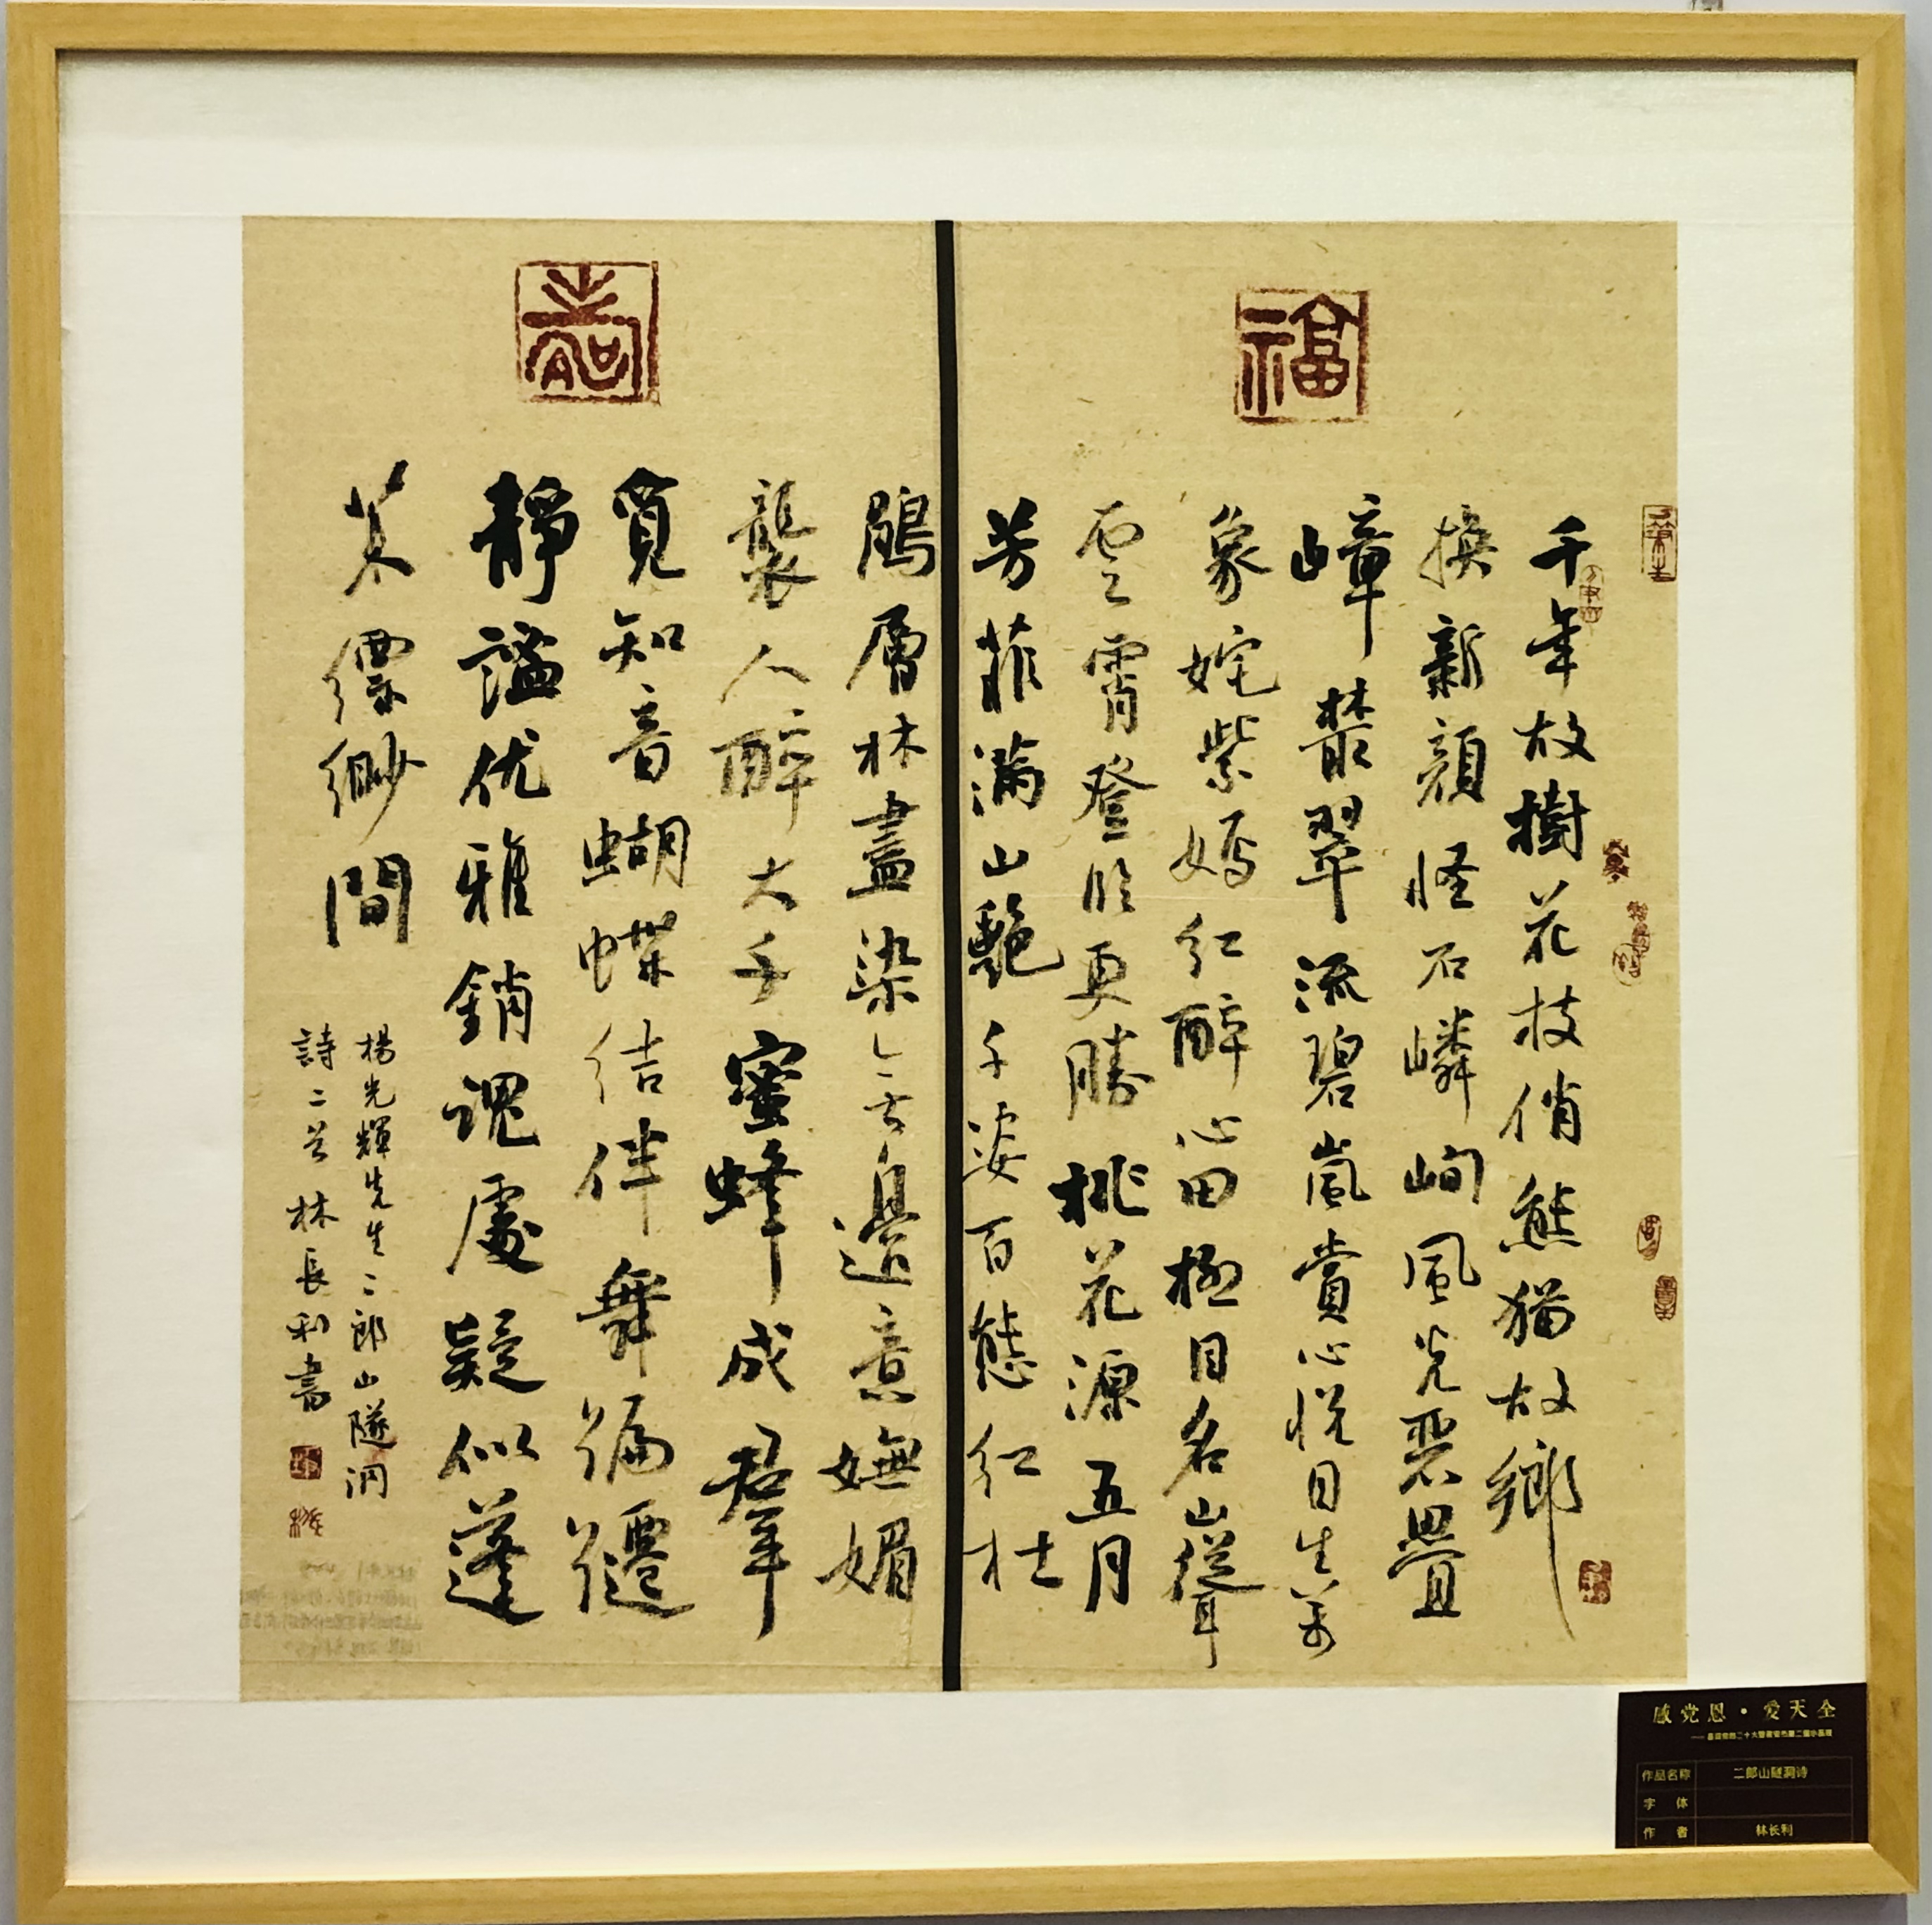 福
千年故樹花枝俏熊猫故鄉
換新顏怪石嶙峋風光惡疊
嶂叢翠流碧嵐賞心悅目生萬
象姹紫嫣紅醉心田極目名山聳
雲霄登臨更勝桃花源五月
芳菲滿山艷千姿百態紅杜
壽
鵑層林盡染無邊意嫵媚
襲人醉大千蜜蜂成群
覓知音蝴蝶結伴舞翩躚
靜謐优雅銷魂處疑似蓬
萊縹緲間
楊光輝先生二郎山隧洞
詩二首 林長利書
感党恩·爱天全
作品名称 二郎山隧洞诗
字体
作者 林长利